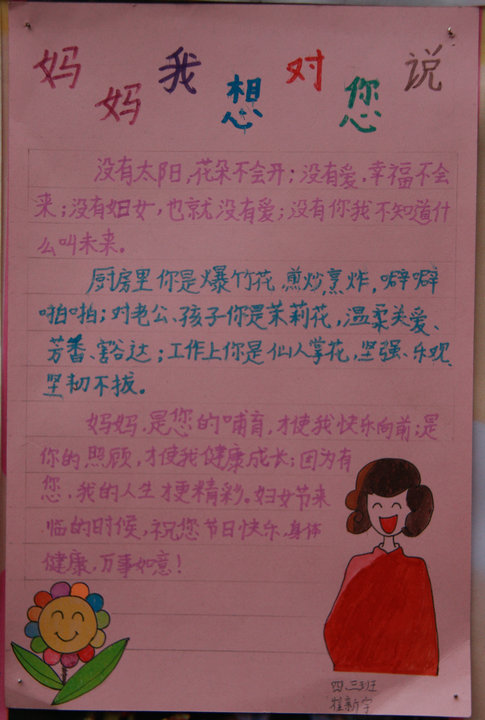 妈妈我想对您说
没有太阳，花朵不会开；没有爱，幸福不会
来；没有妇女，也就没有爱；没有你我不知道什
么叫未来。
厨房里你是爆竹花，煎炒烹炸，噼噼
啪啪；对老公、孩子你是茉莉花，温柔关爱、
芳香、豁达；工作上你是仙人掌花，坚强、乐观、
坚韧不拔。
妈妈，是您的哺育，才使我快乐向前；是
你的照顾，才使我健康成长；因为有
您，我的人生才更精彩。妇女节来
临的时候，祝您节日快乐，身体
健康，万事如意！
四.三班
崔新宇